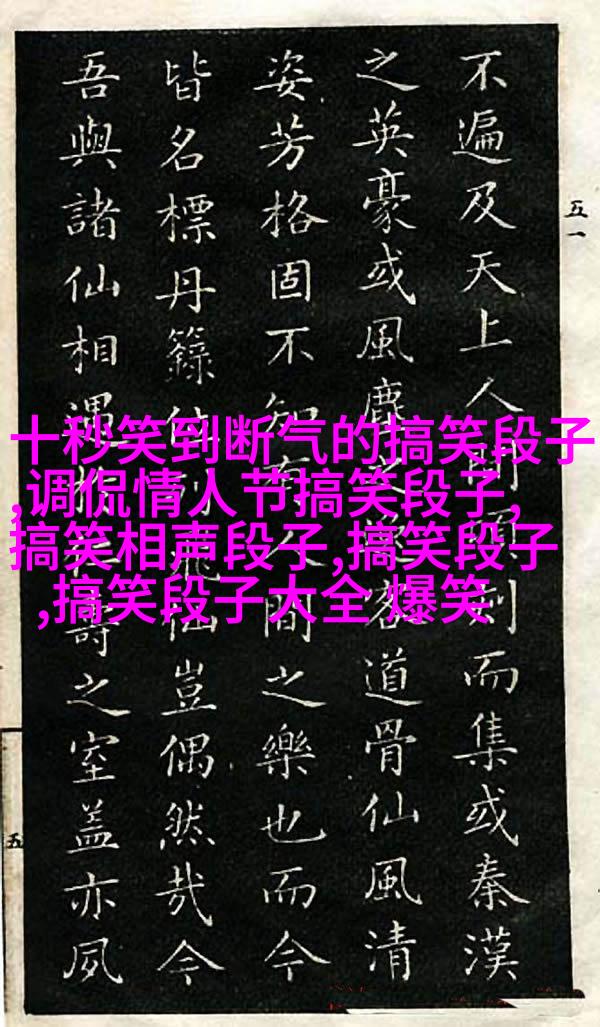 不遍及天上人間刻而集或秦漢
之英豪或風塵之客道骨仙風清
姿芳格固不知有人間之樂也而今
皆名標丹籙位列飛仙豈偶然哉今
吾與諸仙相遇於壽之室蓋亦夙
五一
五
十秒笑到断气的搞笑段子
,调侃情人节搞笑段子,
搞笑相声段子,搞笑段子
,搞笑段子大全 爆笑